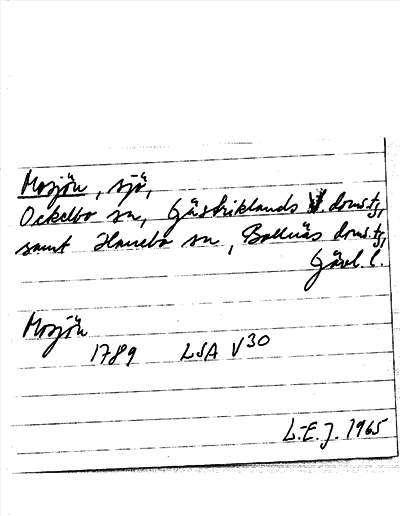 Mosjön, sjö,
Ockelbo sn, Gästriklands doms.tg,
samt Hanebo sn, Bollnäs doms.tg,
Gävl. l.
Mosjön
1789 LSA V30
L.-E. J. 1965